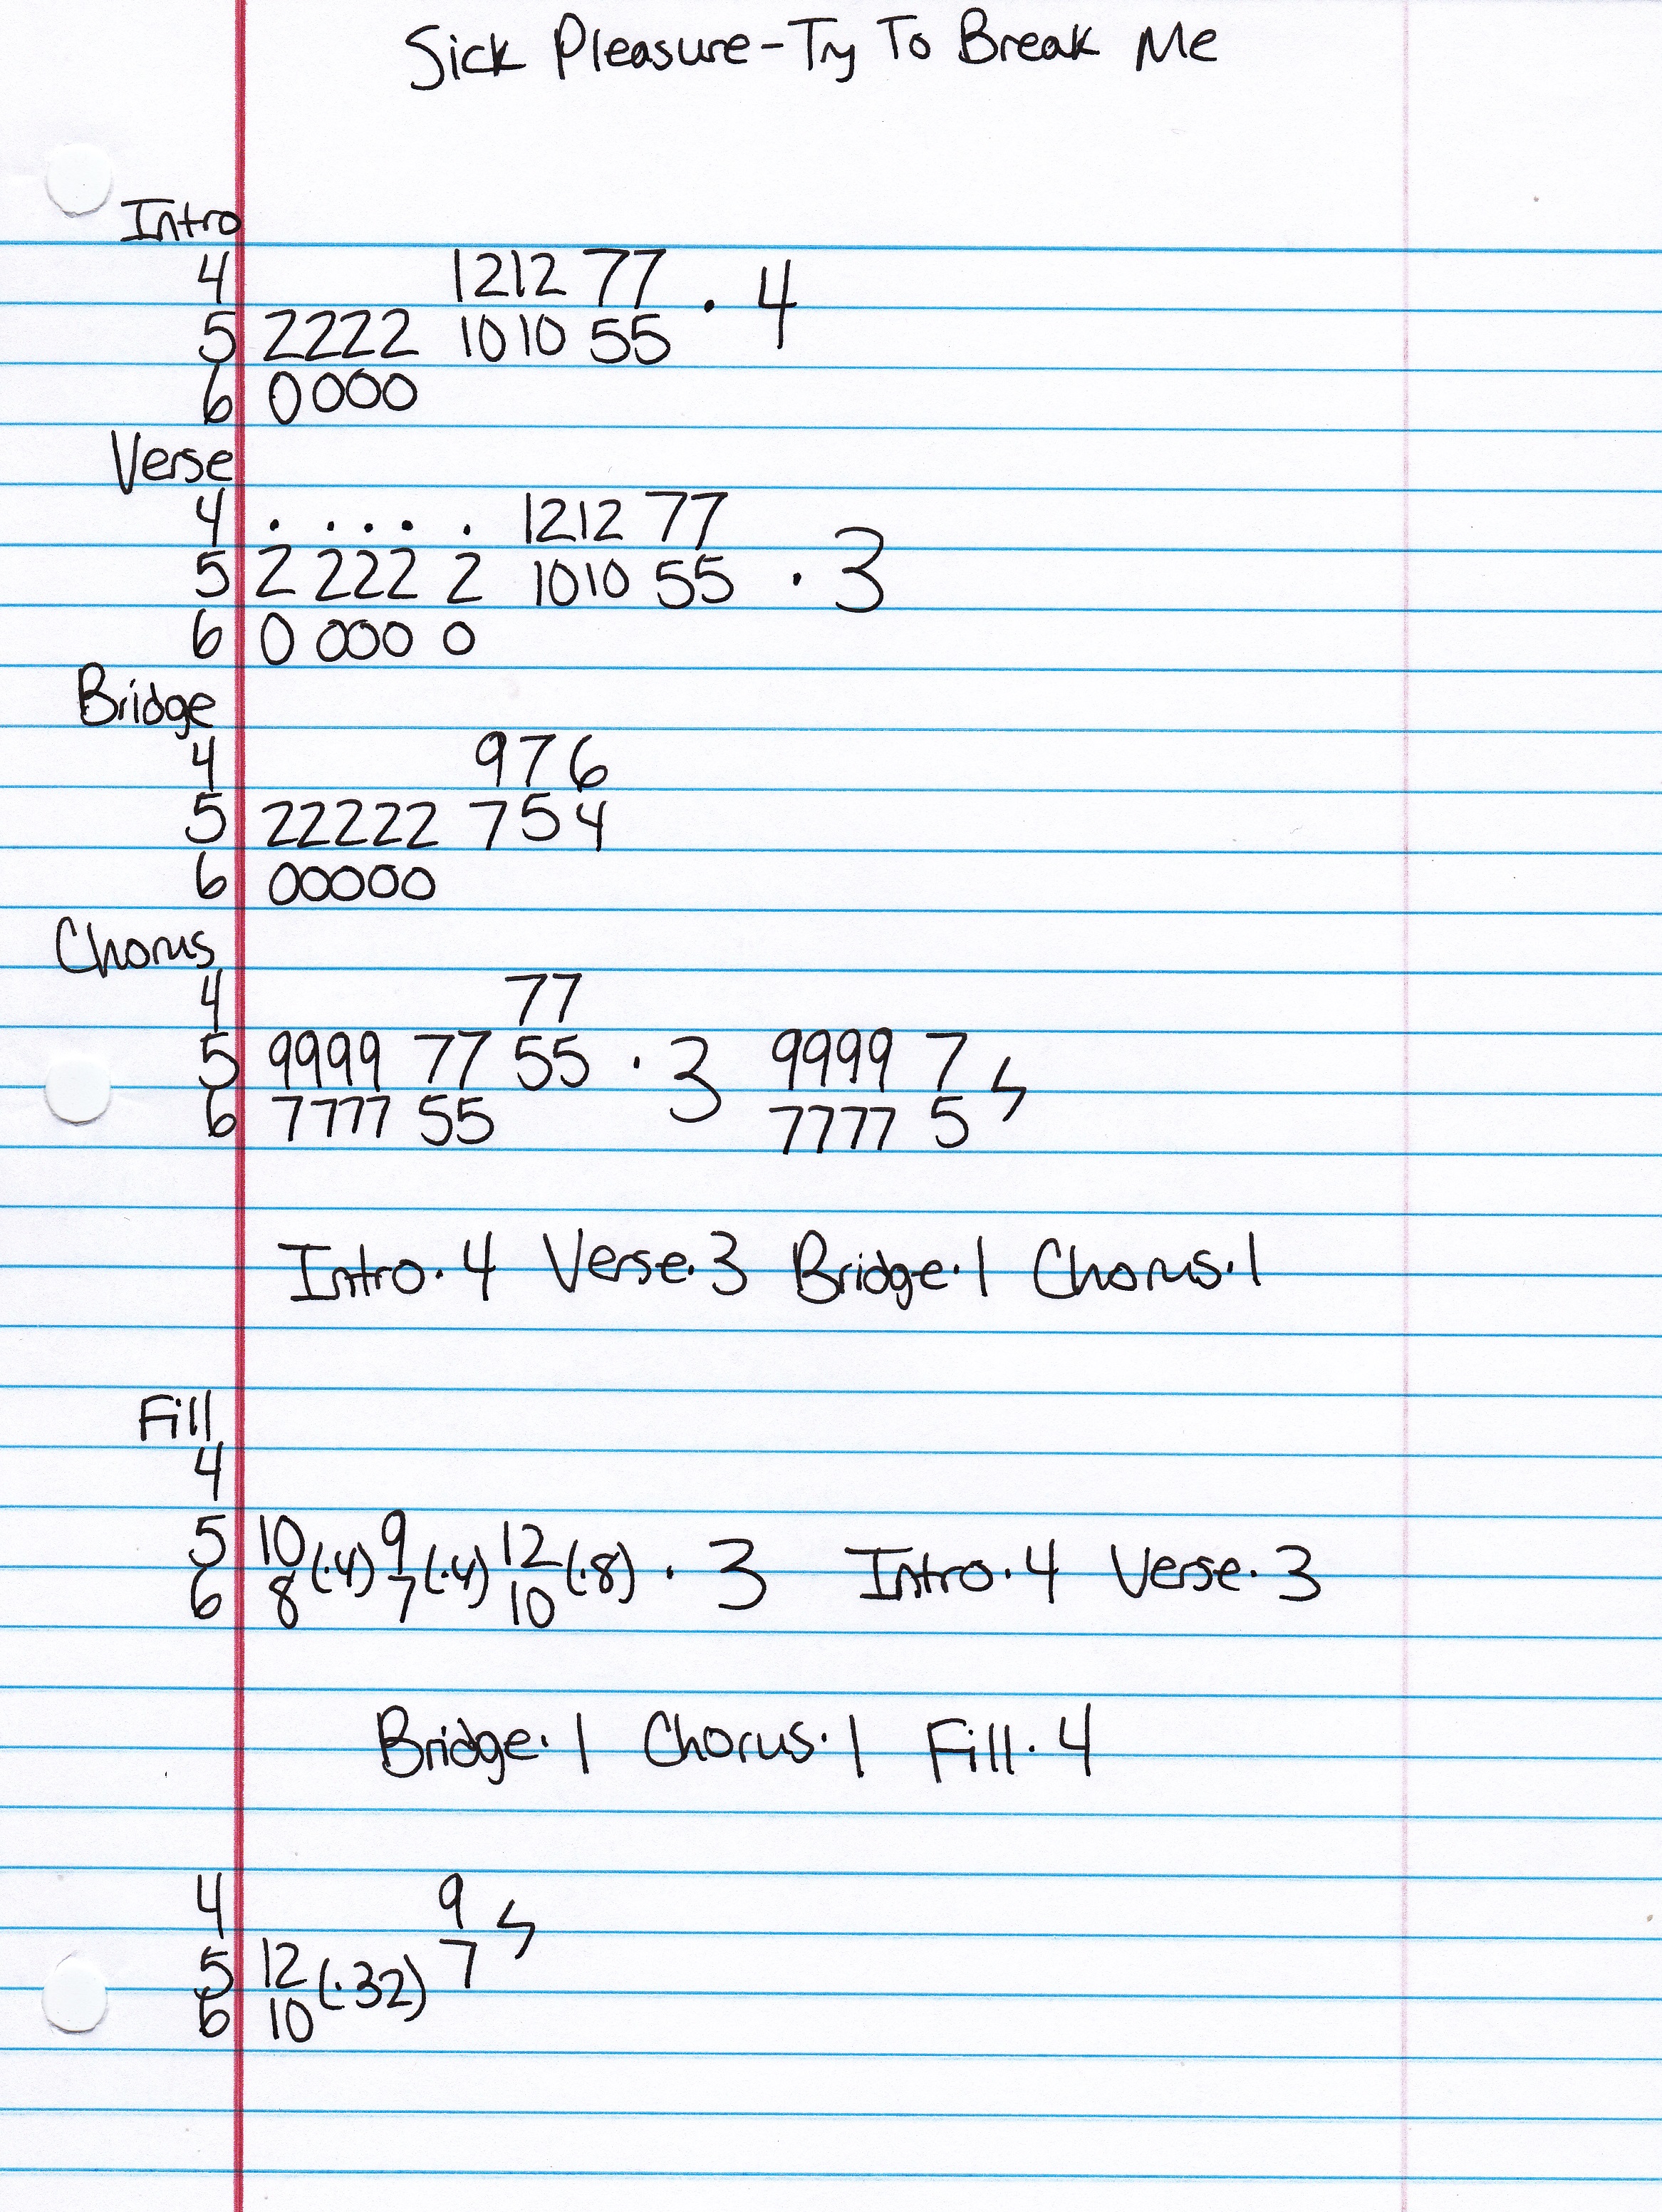 Sick Pleasure-Try To Break Me
Intro
4 1212 77 · 4
5 2222 1010 55
6 0000
Verse
4 . . . . . 1212 77
5 2 222 2 1010 55 · 3
6 0 000 0
Bridge
4 976
5 22222 754
6 00000
Chorus
4 77
5 9999 77 55 · 3 9999 7
6 7777 55 7777 5
Intro·4 Verse·3 Bridge·1 Chorus·1
Fill
4
5 10 (·4) 9 (·4) 12 (·8) · 3 Intro·4 Verse·3
6 8 7 10
Bridge·1 Chorus·1 Fill·4
4 9
5 12 (·32) 7
6 10